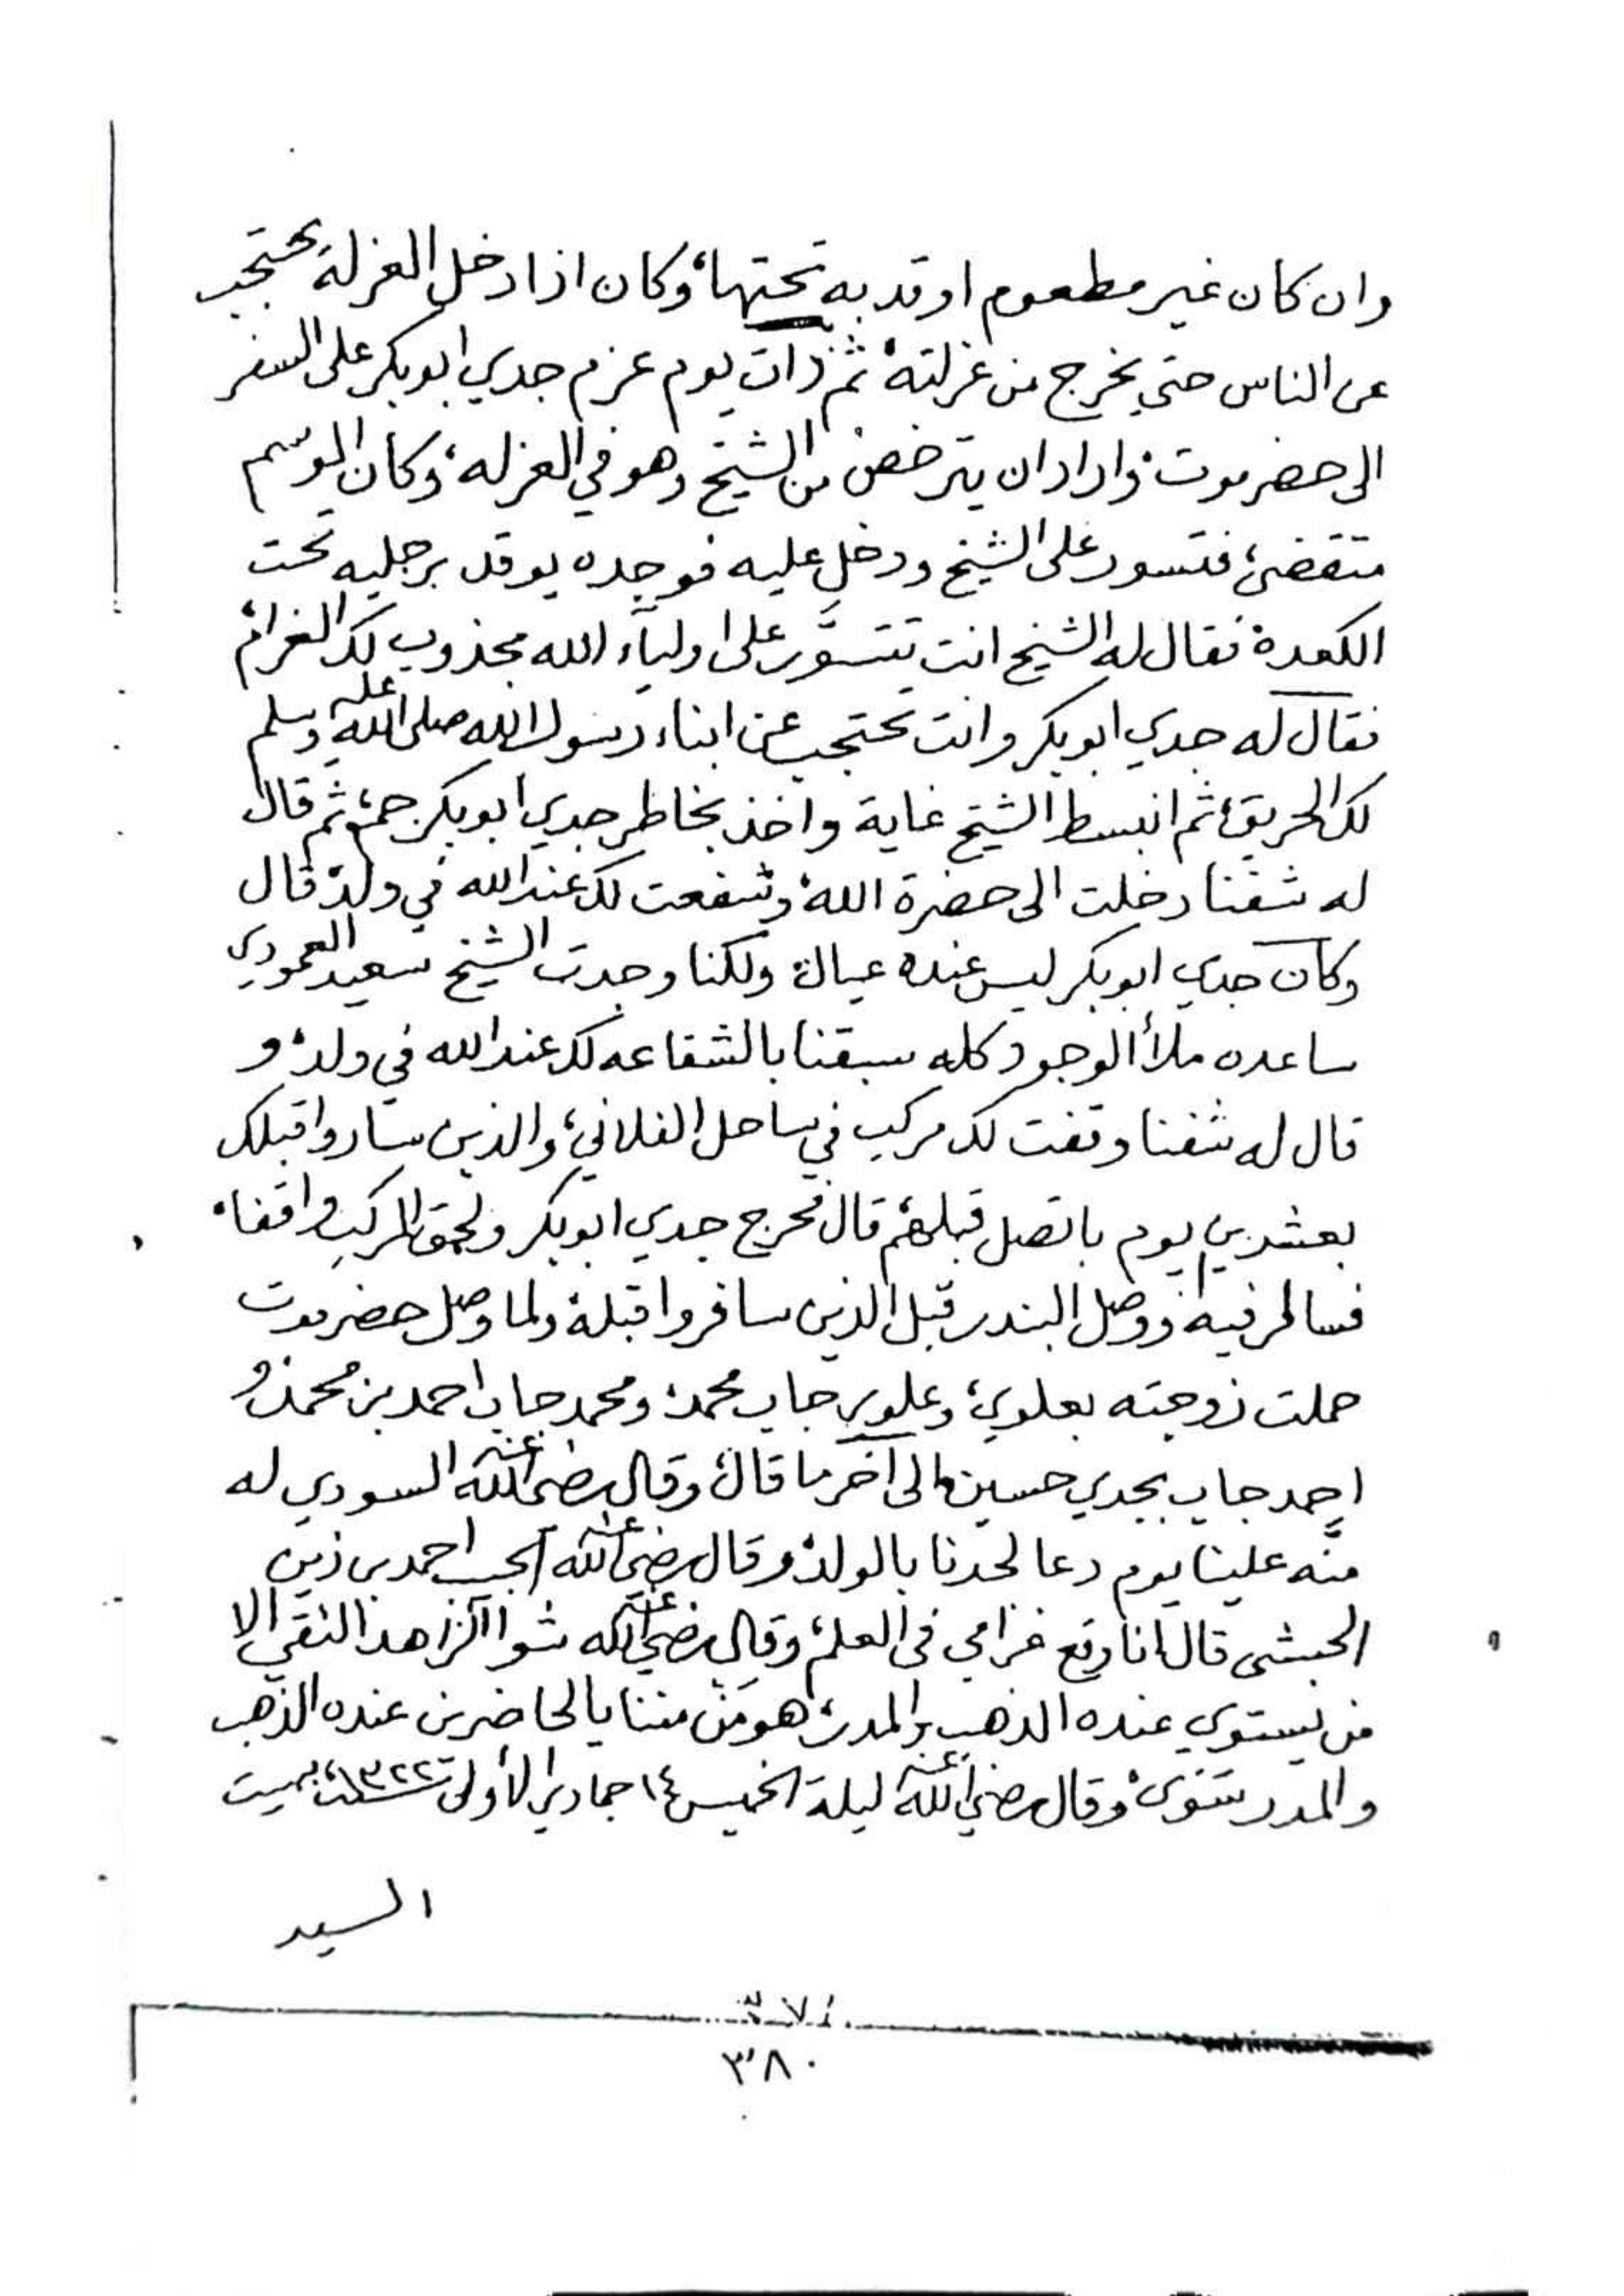 وان كان غير مطعوم اوقد به تحتها، وكان اذا دخل العزلة يحتجب
عن الناس حتى يخرج من عزلته، ثم ذات يوم عزم جدي ابوبكر على السفر
الى حضرموت، واراد ان يترخص من الشيخ وهو في العزله، وكان الموسم
متقضي، فتسور على الشيخ ودخل عليه فوجده يوقد برجليه تحت
الكعدة، فقال له الشيخ انت تتسوَّر على اولياء الله مجذوب لك الغرام،
فقال له جدي ابوبكر وانت تحتجب عن ابناء رسول الله صلى الله عليه وسلم
لك الحريق، ثم انبسط الشيخ غاية واخذ بخاطر جدي ابوبكر جم، ثم قال
له شفنا دخلت الى حضرة الله، وشفعت لك عند الله في ولد، قال
وكان جدي ابوبكر ليس عنده عيال، ولكنا وجدت الشيخ سعيد العمودي
ساعده ملأ الوجود كله سبقنا بالشفاعه لك عند الله في ولد، و
قال له شفنا وقفت لك مركب في ساحل الفلاني، والذين ساروا قبلك
بعشرين يوم باتصل قبلهم، قال فخرج جدي ابوبكر ولحق المركب واقفا،
فسافر فيه، ووصل البندر قبل الذين سافروا قبله، ولما وصل حضرموت
حملت زوجته بعلوي، وعلوي جاب محمد، ومحمد جاب احمد بن محمد، و
احمد جاب بجدي حسين، الى آخر ما قال، وقال رضي الله عنه السودي له
منَّه علينا يوم دعا لجدنا بالولد، وقال رضي الله عنه الحبيب احمد بن زين
الحبشي قال انا وقع غرامي في العلم، وقال رضي الله عنه شوا الزاهد النقي الا
من يستوي عنده الذهب والمدر، هو مَنْ مننا يالحاضرين عنده الذهب
والمدر ستوى، وقال رضي الله عنه ليلة الخميس ١٤ جمادى الأولى سنة ١٣٢٢، ببيت
السيد
٣٨٠